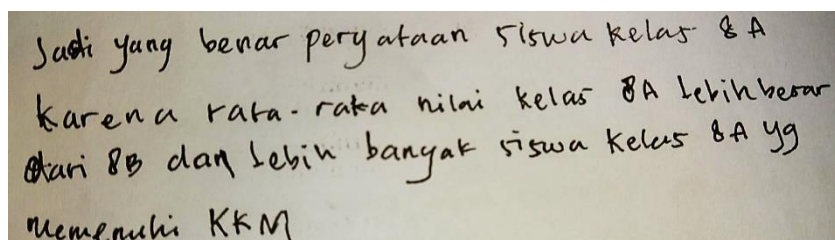 Jadi yang benar peryataan siswa kelas 8A
Karena rata-rata nilai kelas 8A lebih besar
dari 8B dan lebih banyak siswa kelas 8A yg
memenuhi KKM